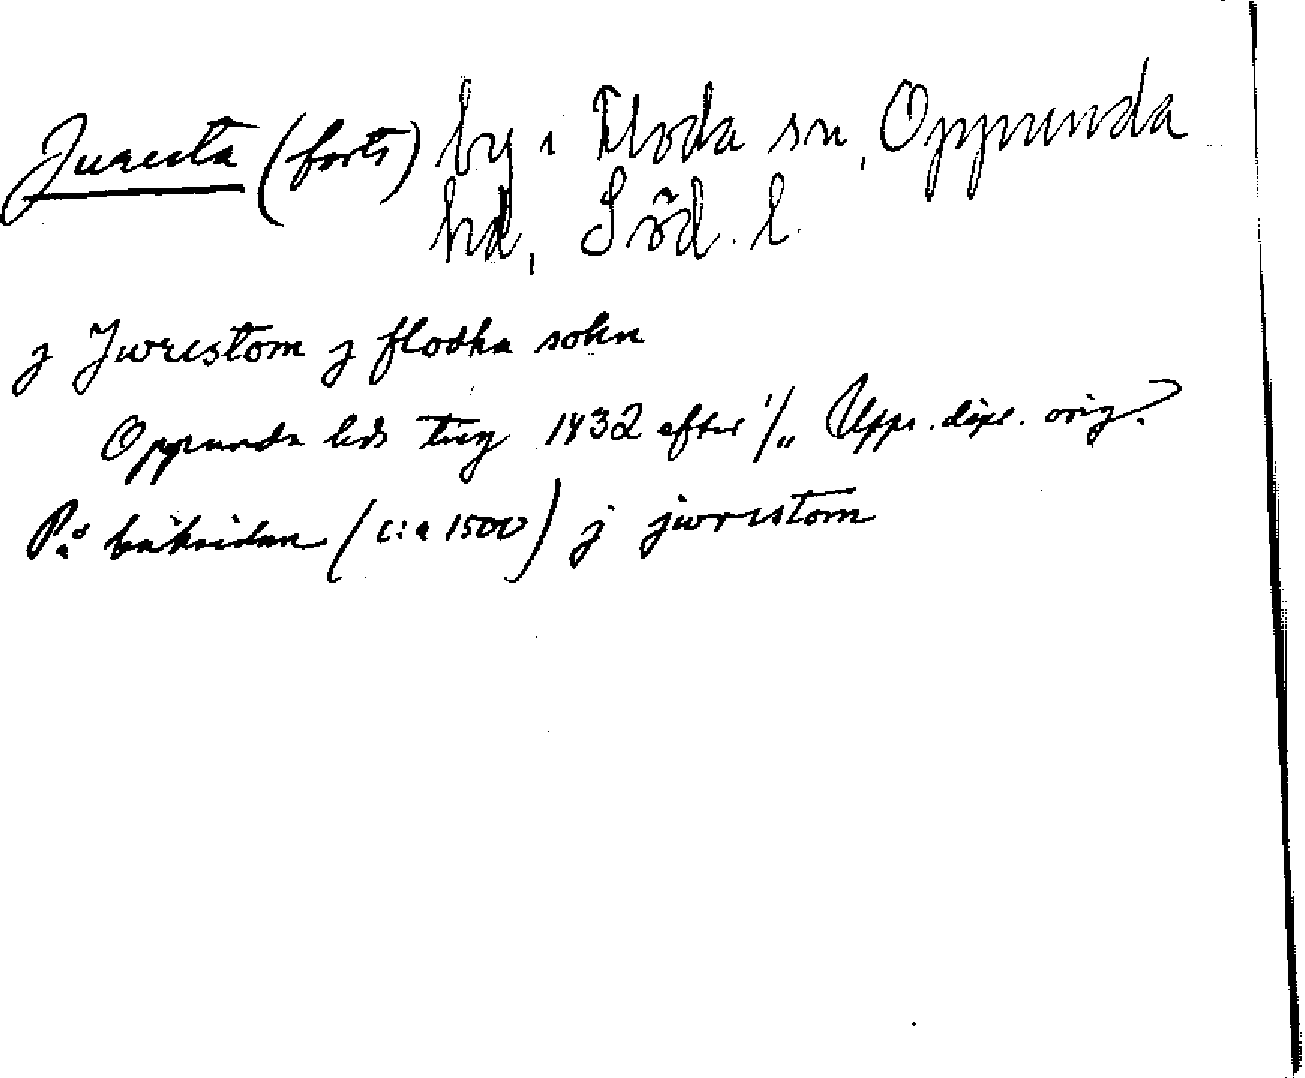 Juresta (forts) by i Floda sn, Oppunda
hd, Söd. l.
j Jwrestom j flodha sokn
Oppunda hds ting 1432 efter 1/11 Upps. dipl. orig.?
På baksidan (c:a 1500) j jwrestom